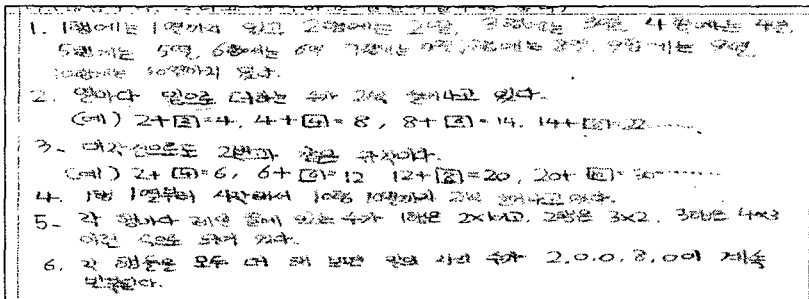 1. 1행에는 1열까지 있고 2행에는 2열, 3행에는 3열, 4행에는 4열,
5행에는 5열, 6행에는 6열 7행에는 7열, 8행에는 8열, 9행에는 9열
10행에는 10열까지 있다.
2. 열마다 밑으로 더하는 수가 2씩 늘어나고 있다.
(예) 2+[2]=4, 4+[4]=8, 8+[6]=14, 14+[8]=22......
3. 2번과 같은 규칙이다.
(예) 2+[4]=6, 6+[6]=12 12+[8]=20, 20+ =30......
4. 1행 1열부터 시작해서 10행 10열까지 2씩 늘어나고 있다.
5. 각 행마다 제일 끝에 있는 수가 1행은 2x1이고, 2행은 3x2, 3행은 4x3
이런 식으로 되어 있다.
6. 각 행들을 모두 더해 보면 일의 자리 수가 2.0.0.8.0이 계속
반복된다.